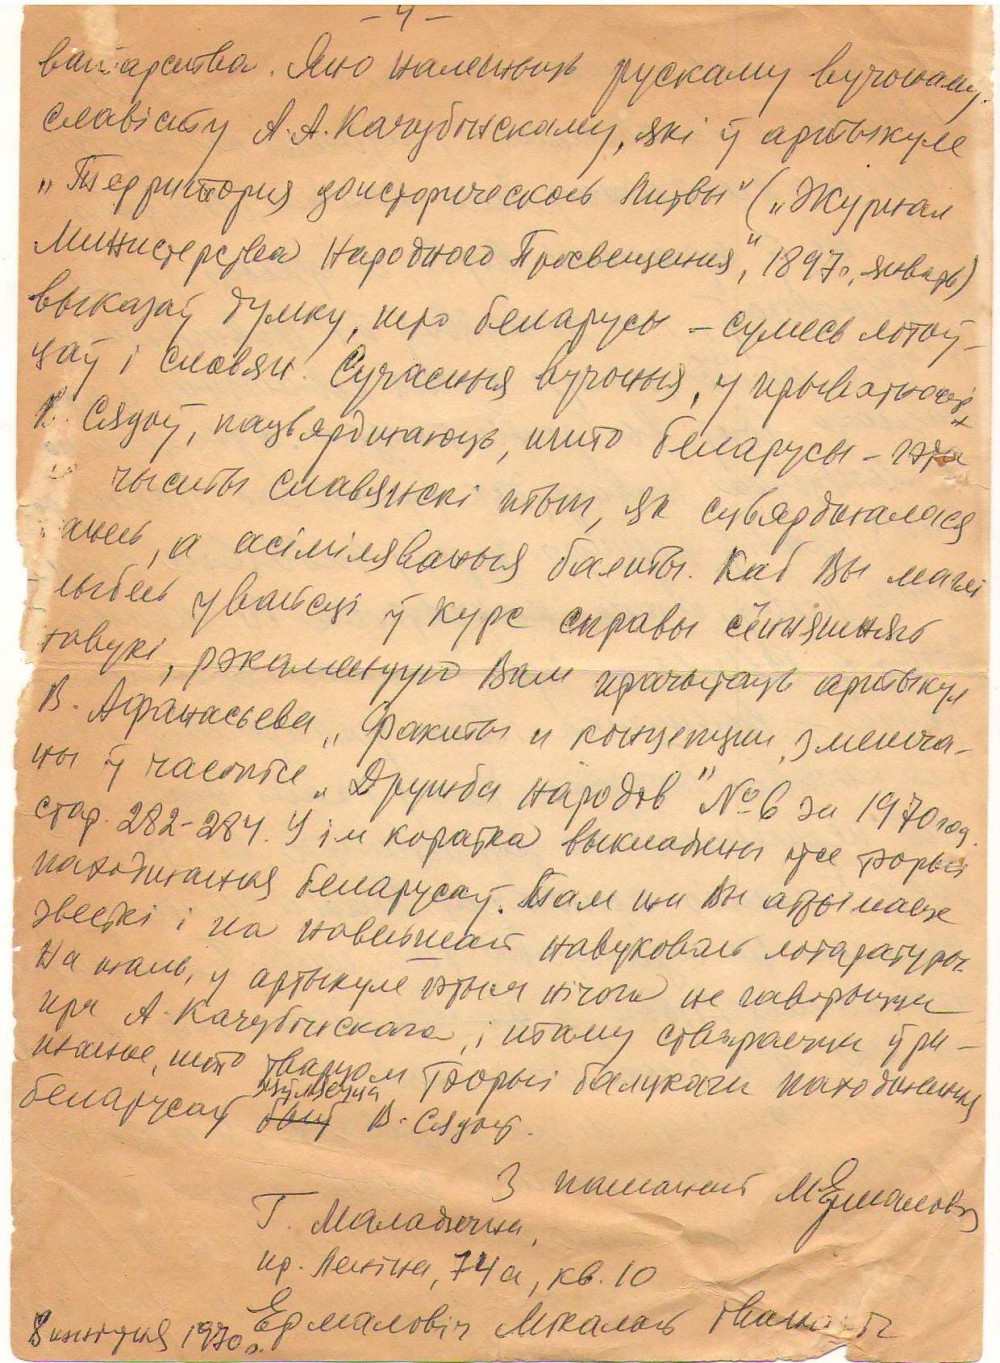 - 4 -
ватарства. Яно належыць рускаму вучонаму
славісту А.А.Качубінскаму, які ў артыкуле
„Территория доисторической Литвы" („Журнал
Министерства Народного Просвещения", 1897г., январь)
выказаў думку, што беларусы – сумесь літоў-
цаў і славян. Сучасныя вучоныя, у прыватнасці
В. Сядоў, пацвярджаюць, што беларусы – не
чысты славянскі тып, як сцвярджалася
раней, а асіміляваныя балты. Каб Вы маглі
глыбей увайсці ў курс справы сённяшняй
навукі, рэкамендую Вам прачытаць артыкул
В. Афанасьева „Факты и концепции", змешча-
ны ў часопісе „Дружба народов" № 6 за 1970 год,
стар. 282-284. У ім коратка выкладзены ўсе тэорыі
паходжання беларусаў. Там жа Вы атрымаеце
звесткі і па навейшай навуковай літаратуры.
На жаль, у артыкуле гэтым нічога не гаворыцца
пра А. Качубінскага, і таму ствараецца ўра-
жанне, што тварцом тэорыі балцкага паходжання
беларусаў з'яўляецца В. Сядоў.
З пашанай МЕрмаловіч
Г. Маладзечна,
пр. Леніна, 74а, кв. 10
Ермаловіч Мікалай Іванавіч
8 жніўня 1970г.